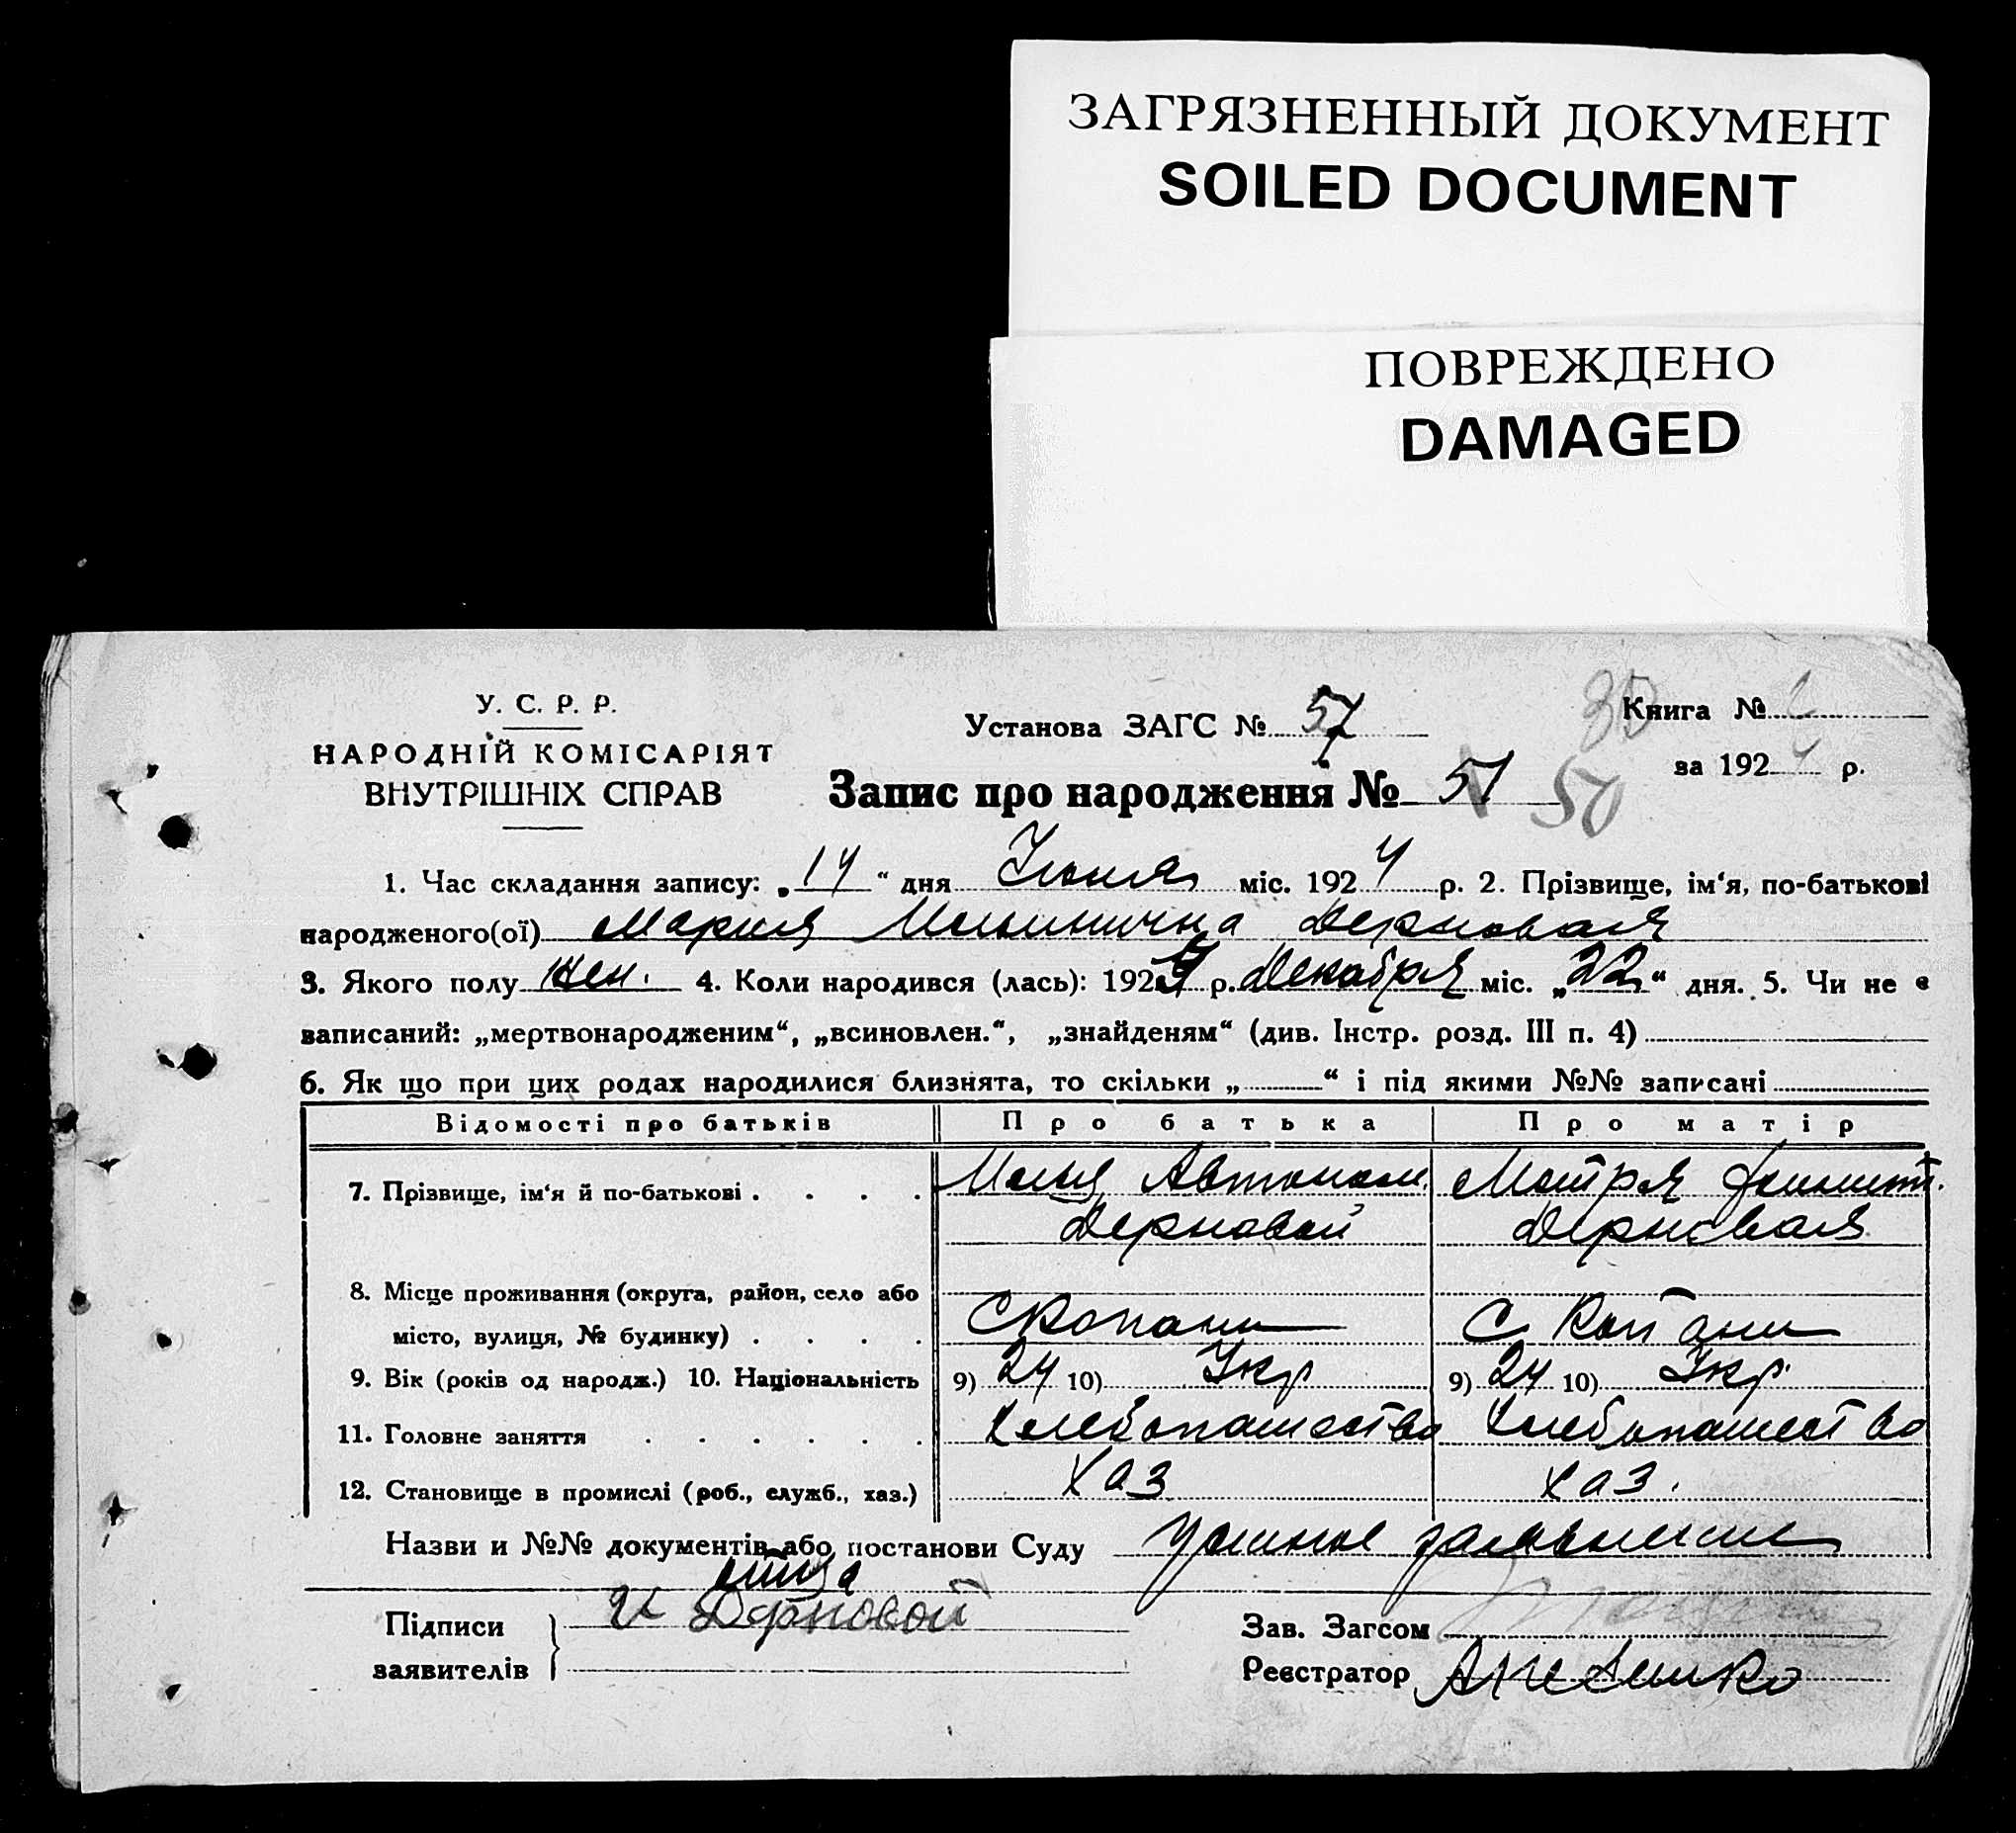 ЗАГРЯЗНЕННЫЙ ДОКУМЕНТ
SOILED DOCUMENT
ПОВРЕЖДЕНО
DAMAGED
У. С. Р. Р.
НАРОДНІЙ КОМІСАРІЯТ
ВНУТРІШНІХ СПРАВ
Установа ЗАГС № 57
30 Книга №
за 1924 р.
Запис про народження № 51 50
1. Час складання запису: „14“ дня Июня міс. 1924 р. 2. Прізвище, ім‘я, по-батькові
народженого(ої) Мария Ильинична Дерновая
3. Якого полу жен. 4. Коли народився (лась): 192 р. Декабря міс. „22“ дня. 5. Чи не є
записаний: „мертвонародженим“, „всиновлен.“, „знайденям“ (див. Інстр. розд. III п. 4)
6. Як що при цих родах народилися близнята, то скільки „ “ і під якими №№ записані
Відомості про батьків Про батька Про матір
7. Прізвище, ім‘я й по-батькові . . . . Илья Автоном. Мотря
Дерновой Дерновая
8. Місце проживання (округа, район, село або
місто, вулиця, № будинку) . . . . С Копани С Копани
9. Вік (років од народж.) 10. Національність 9) 24 10) Укр 9) 24 10) Укр.
11. Головне заняття . . . . . . Хлебопашество Хлебопашество
12. Становище в промислі (роб., служб., хаз.) Хаз Хаз.
Назви и №№ документів або постанови Суду Устное заявление
отца
Підписи И Дерновой Зав. Загсом
заявителів Реєстратор